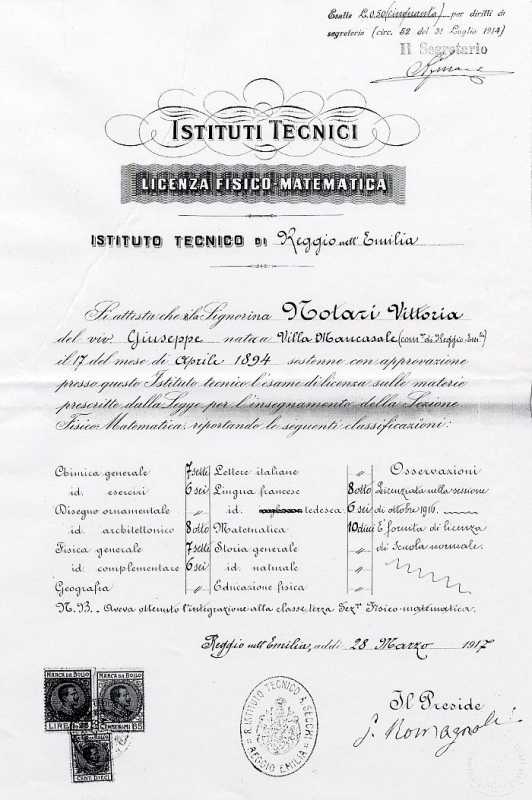 Esatte L. 0.50 (cinquanta) per diritti di
segreteria (circ. 52 del 31 Luglio 1914)
Il Segretario
ISTITUTI TECNICI
LICENZA FISICO-MATEMATICA
ISTITUTO TECNICO DI Reggio nell'Emilia
Si attesta che la Signorina Notari Vittoria
del viv. Giuseppe nata a Villa Mancasale (com. di Reggio Em.)
il 17 del mese di Aprile 1894 sostenne con approvazione
presso questo Istituto tecnico l'esame di licenza sulle materie
prescritte dalla Legge per l'insegnamento della Sezione
Fisico-Matematica, reportando le seguenti classificazioni:
Chimica generale 7 sette Lettere italiane „ Osservazioni
id. esercizi 6 sei Lingua francese 8 otto Licenziata nella sessione
Disegno ornamentale „ id. tedesca 6 sei di ottobre 1916.
id. architettonico 8 otto Matematica 10 dieci È fornita di licenza
Fisica generale 7 sette Storia generale „ di Scuola normale.
id. complementare 6 sei id. naturale „
Geografia „ Educazione fisica „
N.B. - Aveva ottenuto l'integrazione alla classe terza Sez. Fisico-matematica.
Reggio nell'Emilia, addì 28 Marzo 1917
MARCA DA BOLLO MARCA DA BOLLO
LIRE
CENT. DIECI
R. ISTITUTO TECNICO A. SECCHI
REGGIO EMILIA
Il Preside
G. Romagnoli